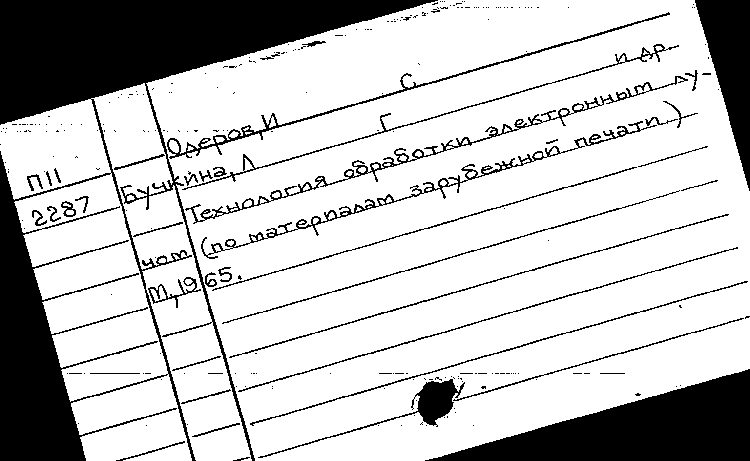 Одеров, И С.
П11 Бучкина, Л Г и др.
2287 Технология обработки электронным лу-
чом (по материалам зарубежной печати)
М, 1965.